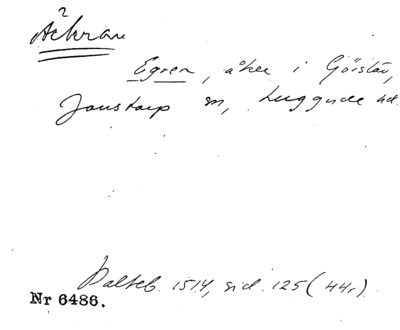 Åkran
Egren, åker i Görslöv,
Jonstorp sn, Luggude hd.
Dalteb. 1514, sid. 125 (44r)
Nr 6486.